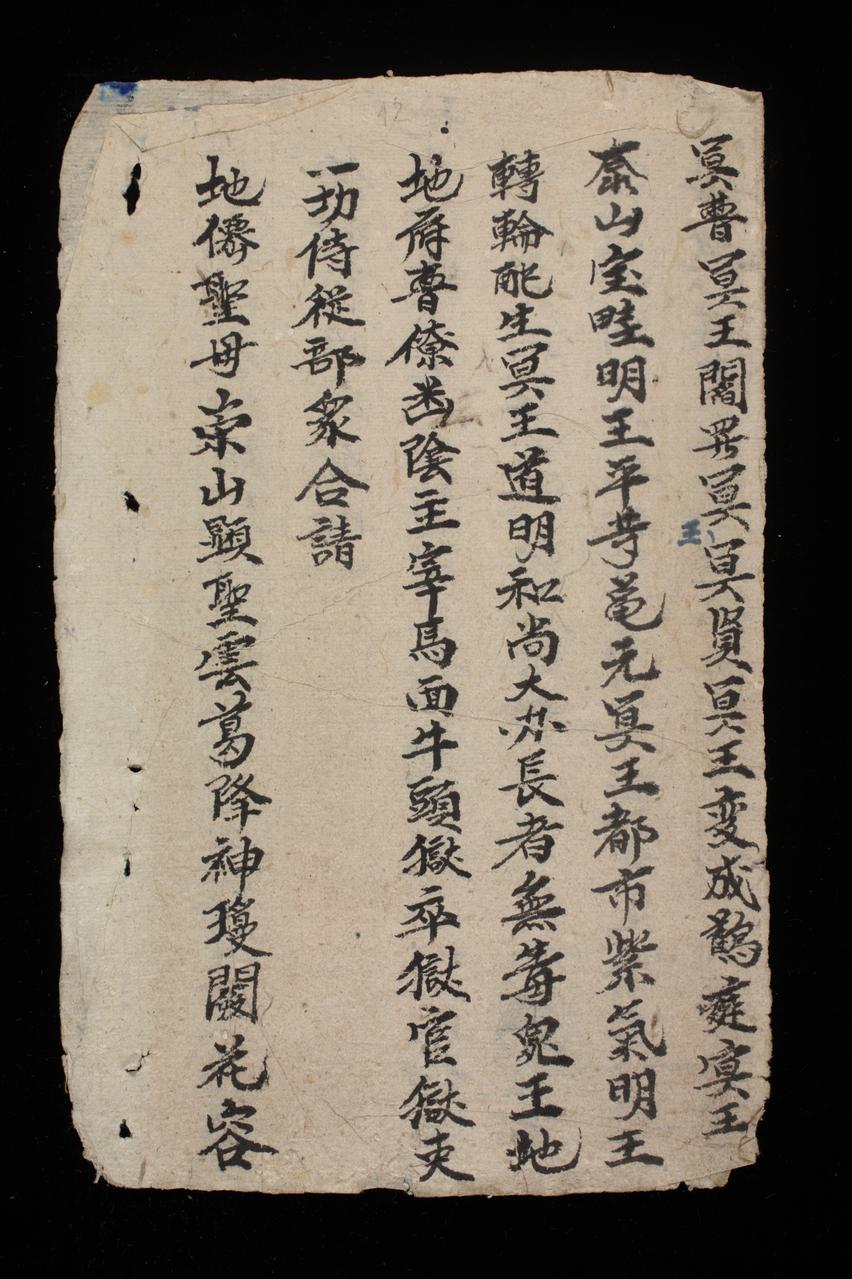 冥曹冥王閻罗冥冥賢冥王变成鵲寔冥王
泰山宝畦明王平等菴元冥王都市紫氣明王
轉輪配生冥王道明和尚大办長者無毒鬼王地
地府曹僚幽陰主宰馬面牛頭獄卒獄官獄吏
一切侍從部衆合請
地僊聖母崇山顕聖雲葛降神瓊闕花容
王
12